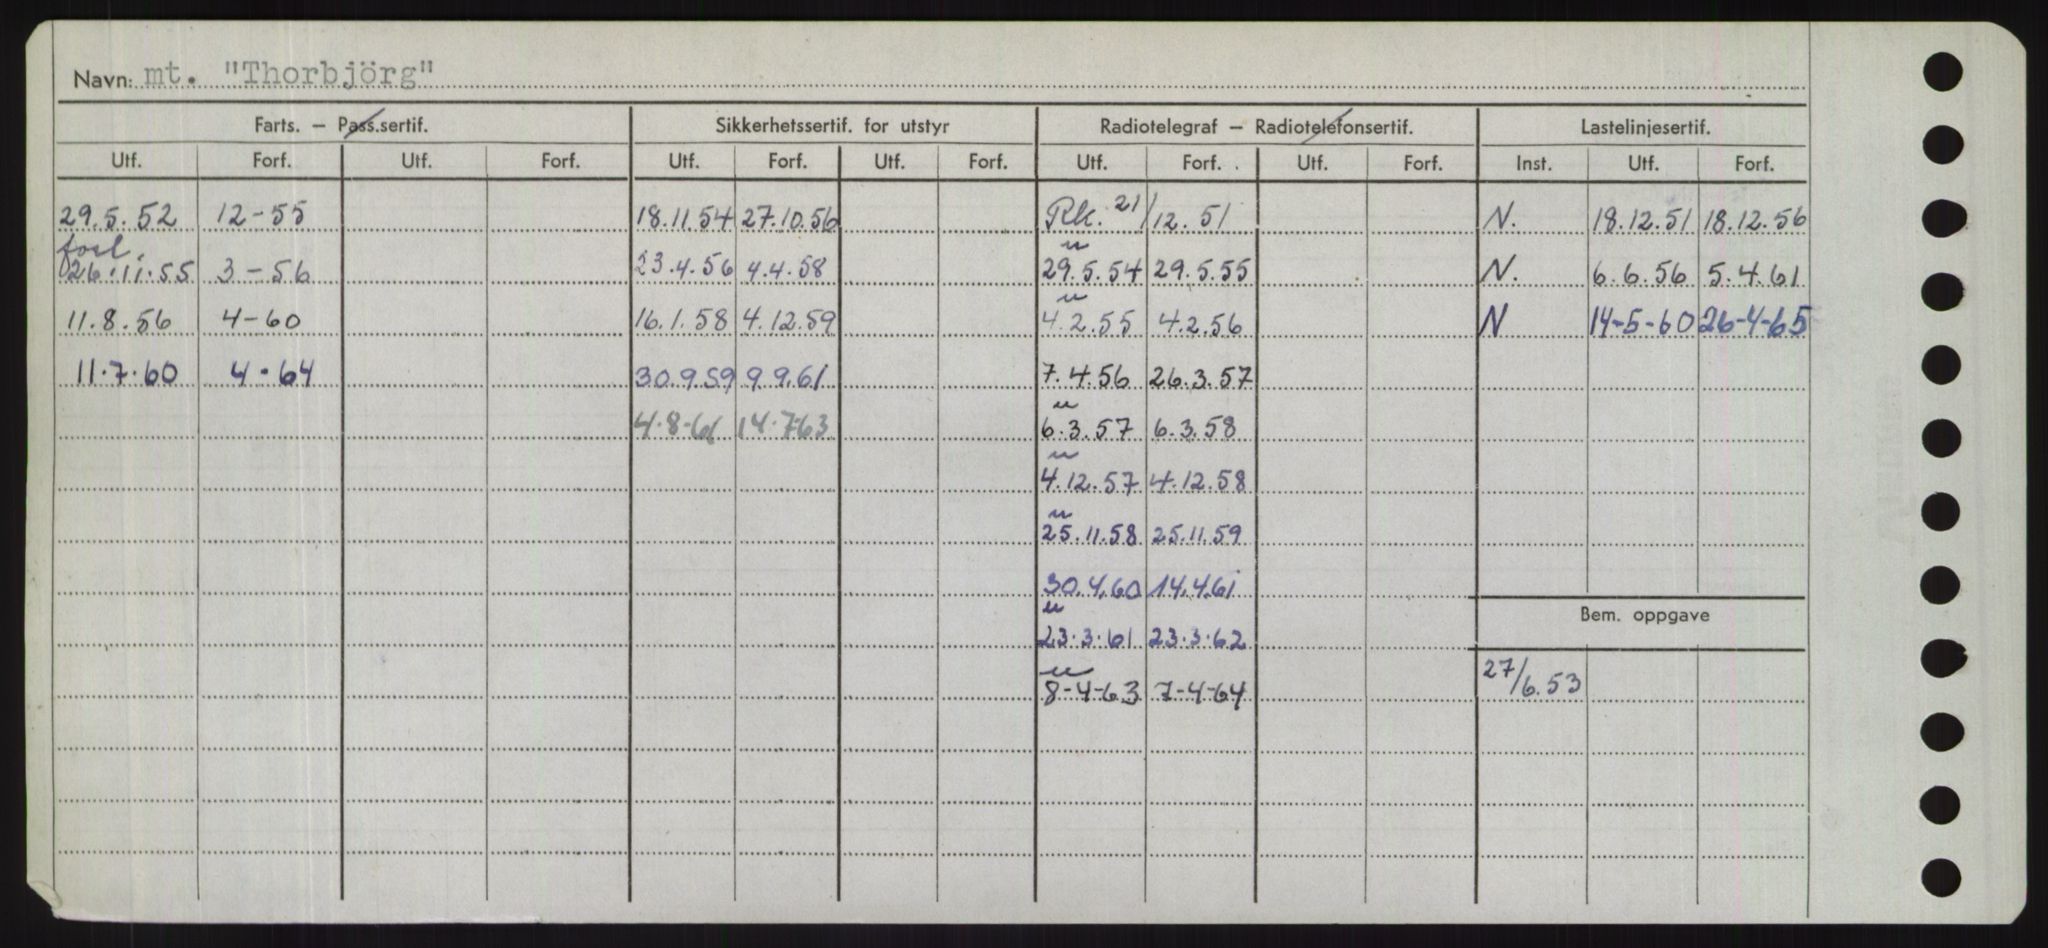 Navn: mt. "Thorbjörg"
Farts. – Pass.sertif. Sikkerhetssertif. for utstyr Radiotelegraf – Radiotelefonsertif. Lastelinjesertif.
Utf. Forf. Utf. Forf. Utf. Forf. Utf. Forf. Utf. Forf. Utf. Forf. Inst. Utf. Forf.
29.5.52 12-55 18.11.54 27.10.56 Rk. 21/12.51 N. 18.12.51 18.12.56
forl. u
26.11.55 3-56 23.4.56 4.4.58 29.5.54 29.5.55 N. 6.6.56 5.4.61
u
11.8.56 4-60 16.1.58 4.12.59 4.2.55 4.2.56 N 14-5-60 26-4-65
11.7.60 4.64 30.9.59 9.9.61 7.4.56 26.3.57
u
4.8-61 14.763 6.3.57 6.3.58
u
4.12.57 4.12.58
u
25.11.58 25.11.59
30.4.60 14.4.61
Bem. oppgave
u
23.3.61 23.3.62
u
8-4-63 7-4-64 27/6.53